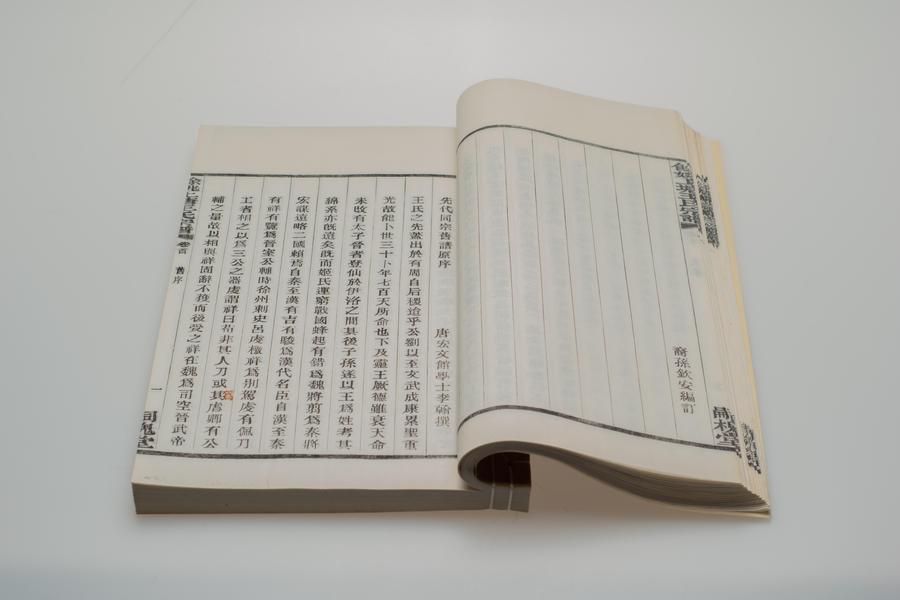 裔孫欽安編訂
先代同宗舊譜原序
唐宏文館學士李翰撰
王氏之先蓋出於有周自后稷迨乎公劉以至文武成康累聖重
光故能卜世三十卜年七百天所命也下及靈王厥德雖衰天命
未改有太子晉者登仙於伊洛之間其後子孫遂以王爲姓考其
錦系亦旣遠矣旣而姬氏運窮戰國蜂起有錯爲魏將翦爲秦將
宏謀遠略二國賴焉自秦至漢有吉有駿爲漢代名臣自漢至秦
有祥有覽爲晉室公輔時徐州刺史呂虔檄祥爲別駕虔有佩刀
工者相之以爲三公之器虔謂祥曰苟非其人刀或爲虐卿有公
輔之量故以相與祥固辭不獲而後受之祥在魏爲司空晉武帝
卷首
舊序
一